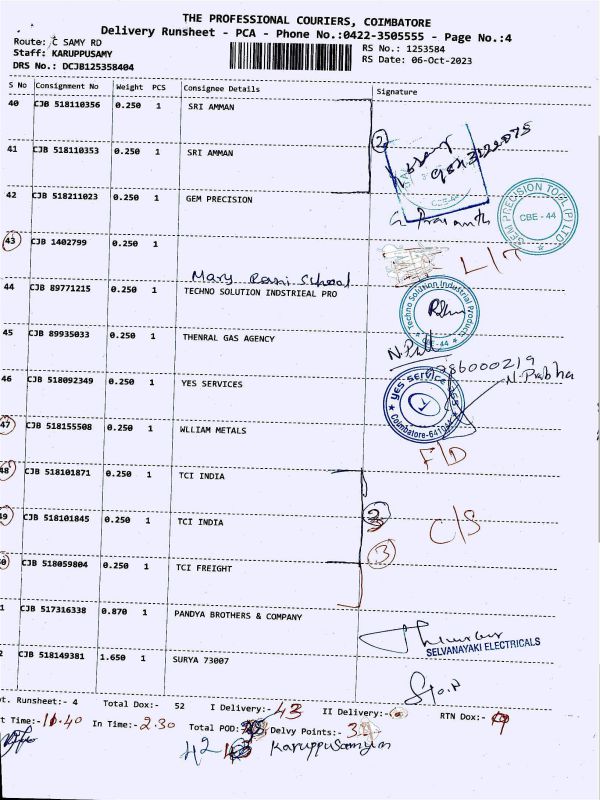 THE PROFESSIONAL COURIERS, COIMBATORE
Delivery Runsheet - PCA - Phone No.:0422-3505555 - Page No.:4
Route: C SAMY RD
RS No.: 1253584
Staff: KARUPPUSAMY
RS Date: 06-Oct-2023
DRS No.: DCJB125358404
S No Consignment No Weight PCS Consignee Details Signature
40 CJB 518110356 0.250 1 SRI AMMAN
2
41 CJB 518110353 0.250 1 SRI AMMAN
CBE-44
42 CJB 518211023 0.250 1 GEM PRECISION
G. Prasanth
GEM PRECISION TOOL (P) LTD CBE - 44
43 CJB 1402799 0.250 1
Mary Rani School
44 CJB 89771215 0.250 1 TECHNO SOLUTION INDSTRIEAL PRO
Techno Solution Industrial Products CBE-44
45 CJB 89935033 0.250 1 THENRAL GAS AGENCY
N. Prabha
46 CJB 518092349 0.250 1 YES SERVICES
YES SERVICES Coimbatore-641044
47 CJB 518155508 0.250 1 WLLIAM METALS
F/D
48 CJB 518101871 0.250 1 TCI INDIA
49 CJB 518101845 0.250 1 TCI INDIA
C/S
3
0 CJB 518059804 0.250 1 TCI FREIGHT
1 CJB 517316338 0.870 1 PANDYA BROTHERS & COMPANY
SELVANAYAKI ELECTRICALS
2 CJB 518149381 1.650 1 SURYA 73007
pt. Runsheet:- 4 Total Dox:- 52 I Delivery:- 43 II Delivery:- RTN Dox:- 9
t Time:- 11.40 In Time:- 2.30 Total POD: Delvy Points:-
42 Karuppusamy